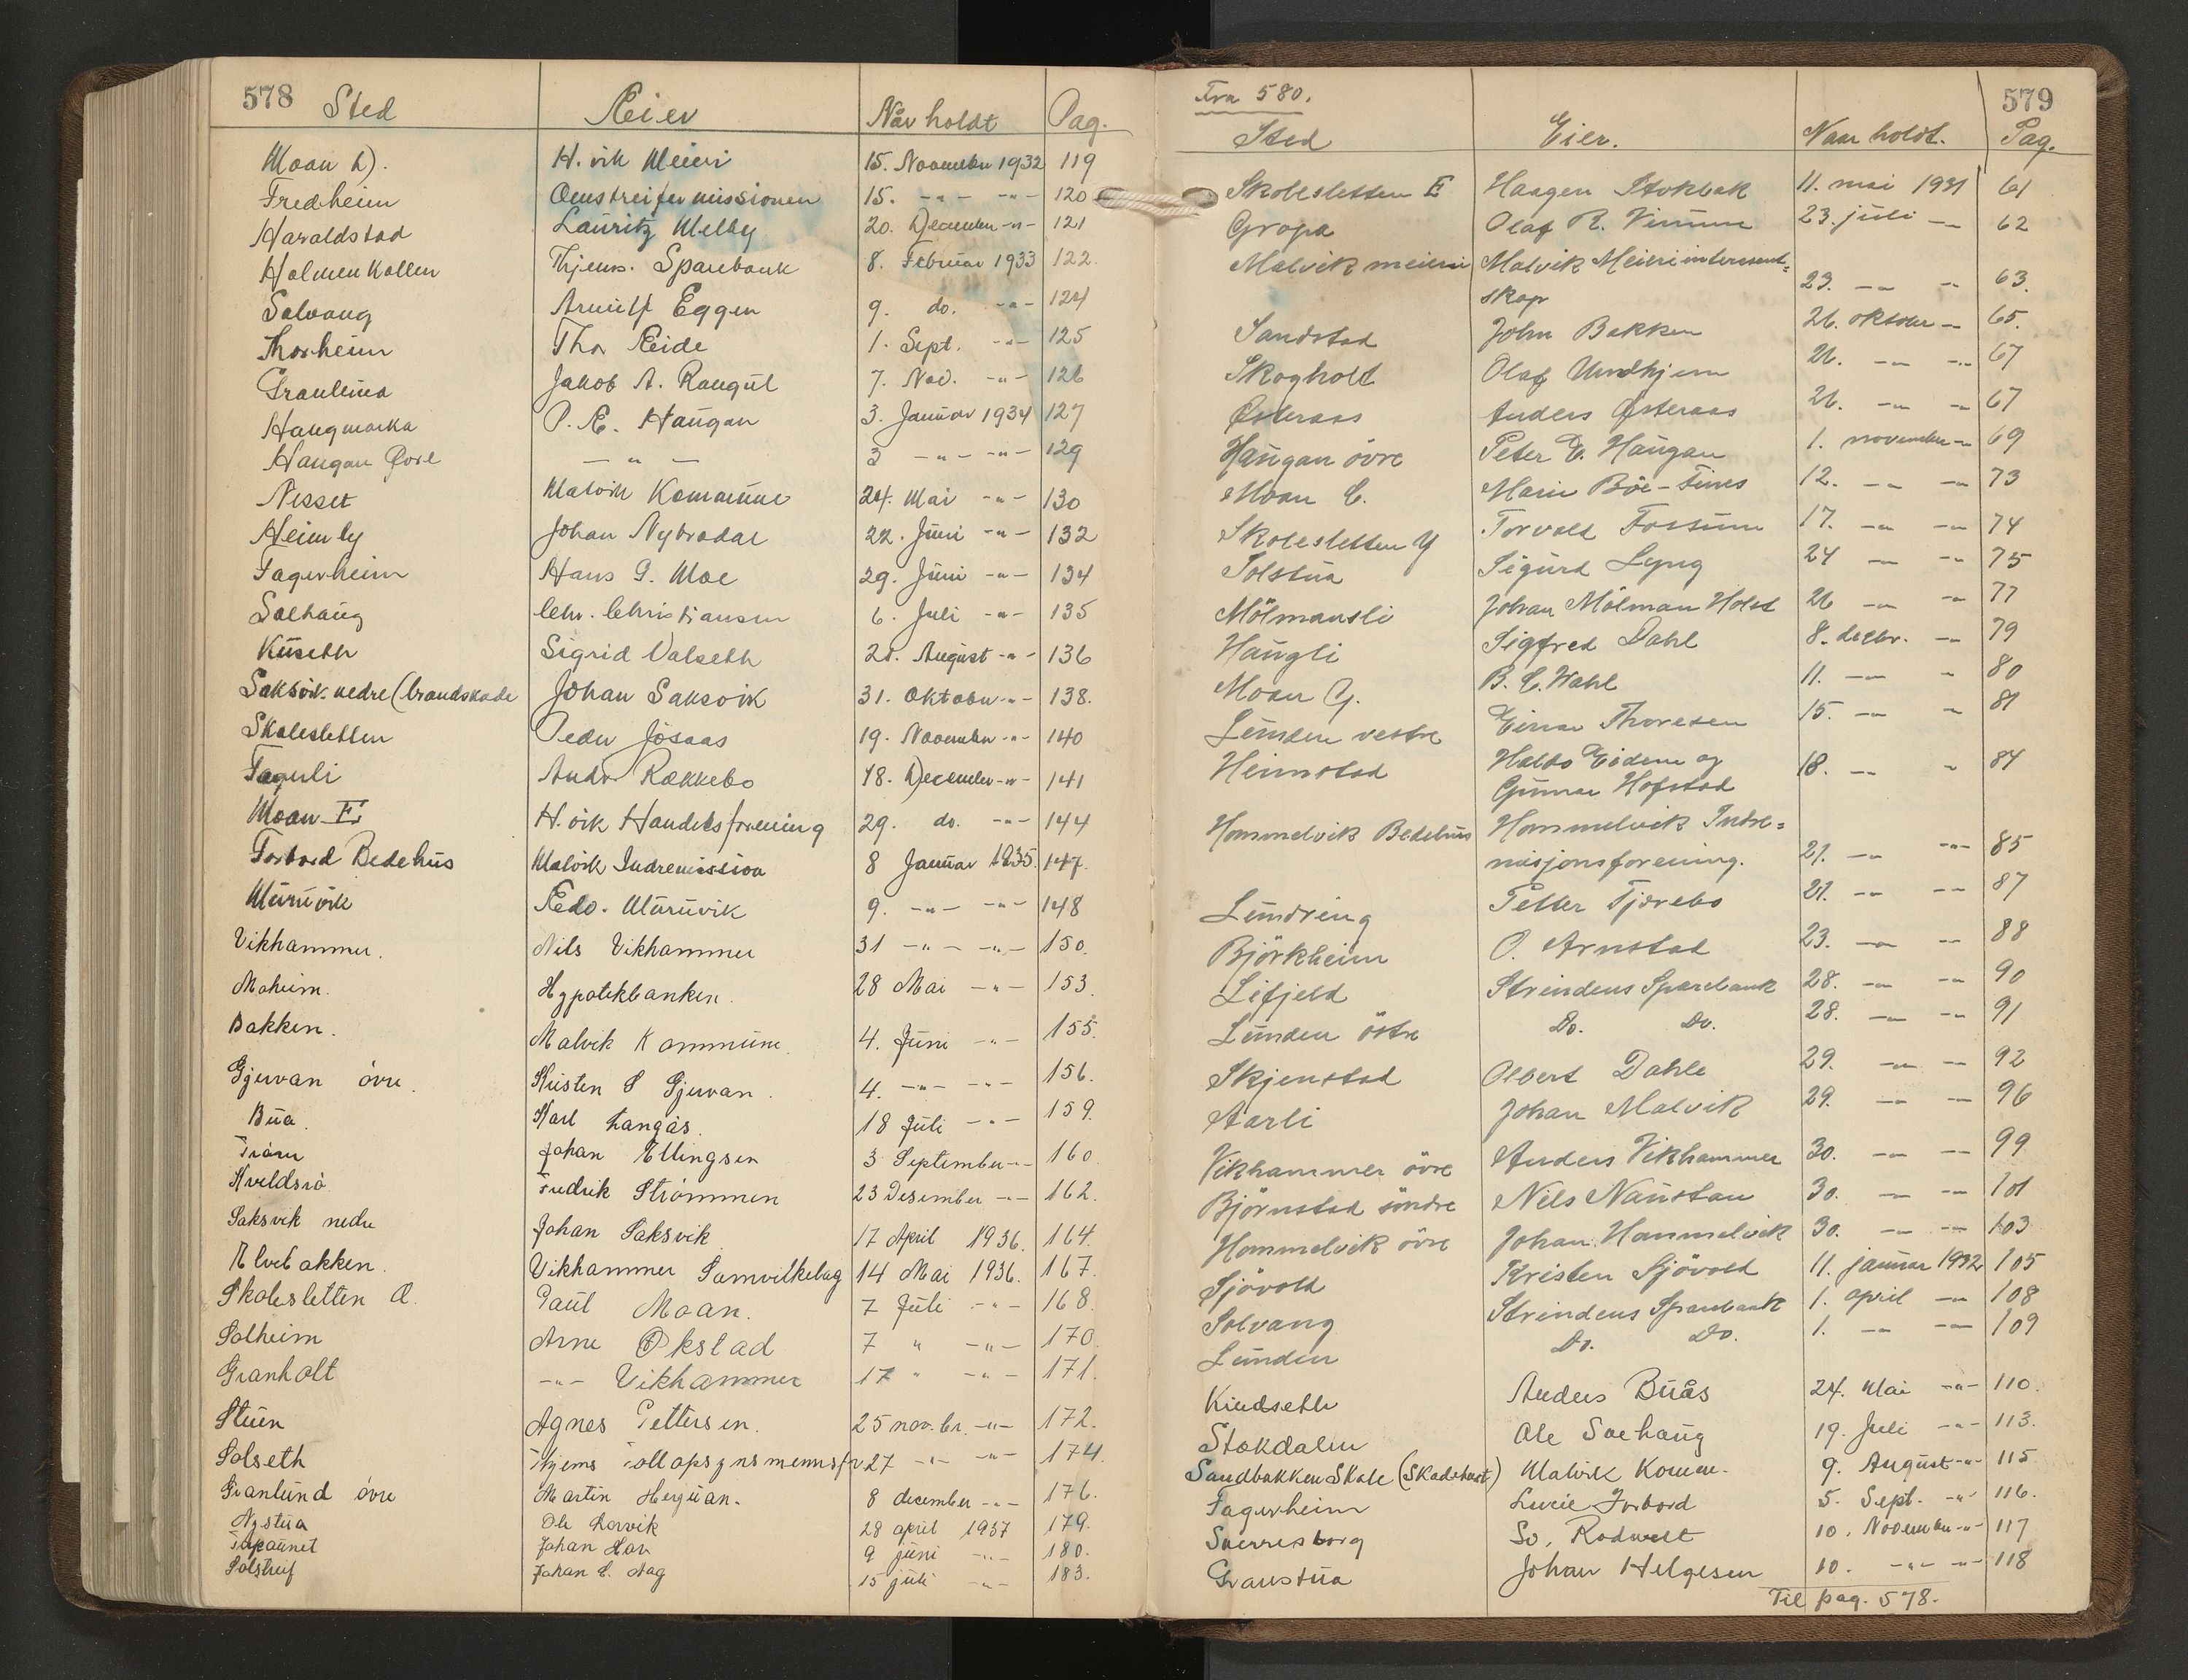 578 Sted Eier Når holdt Pag.
Moan h). H.vik Meieri 15. November 1932 119
Fredheim Omstreifermissionen 15. -"- -"- 120
Haraldstad Lauritz Melby 20. December -"- 121
Holmenkollen Thjems. Sparebank 8. Februar 1933 122.
Solvang Arnulf Eggen 9. do. -"- 124
Thorheim Thor Eide 1. Sept. -"- 125
Granlund Jakob A. Rangul 7. Nov. -"- 126
Haugmarka P. E. Haugan 3. Januar 1934 127
Haugan Øvre -"- 3 -"- -"- 129
Nesset Malvik Kommune 24. Mai -"- 130
Heimly Johan Nybrodal 22. Juni -"- 132
Fagerheim Hans G. Moe 29. Juni -"- 134
Solhaug Chr. Christiansen 6. Juli -"- 135
Kuseth Sigrid Valseth 21. August -"- 136
Saksvik nedre (brandskade Johan Saksvik 31. Oktober -"- 138.
Skolesletten Peder Jøsaas 19. November -"- 140
Fagerli Andr Rækkebo 18. December -"- 141
Moan E. H.vik Handelsforening 29. do. -"- 144
Forbord Bedehus Malvik Indremission 8 Januar 1935. 147.
Muruvik Edv. Muruvik 9. -"- -"- 148
Vikhammer. Nils Vikhammer 31 -"- -"- 150.
Moheim. Hypotekbanken. 28 Mai -"- 153.
Bakken. Malvik Kommune. 4. Juni -"- 155.
Gjervan övre. Kristen S Gjervan. 4. -"- -"- 156.
Bua. Karl Langås. 18 Juli -"- 159.
Trøen Johan Ellingsen 3 September -"- 160
Kveldsro Fredrik Strømmen 23 Desember -"- 162.
Saksvik nedre Johan Saksvik 17 April 1936. 164.
Elvebakken. Vikhammer Samvirkelag 14 Mai 1936. 167.
Skolesletten A. Paul Moan. 7 Juli -"- 168.
Solheim Arne Økstad 7 " -"- 170.
Granholt -"- Vikhammer 17 " -"- 171.
Stuen Agnes Pettersen. 25 nov.br. -"- 172.
Solseth Thjems Tollopsynsmennsf 27 -"- -"- 174.
Granlund övre Martin Herjuan. 8 december -"- 176.
Nystua Ole Lorvik 28 april 1937 179.
Johan Hov 9 juni -"- 180.
Solstreif Johan E. Aag 15 juli -"- 183.
Fra 580. 579
Sted Eier. Naar holdt. Pag.
Skolesletten E Haagen Stokbak 11. mai 1931 61
Gropa Olaf R. Vinnum 23. juli -"- 62
Malvik meieri Malvik Meieriinteressent=
skap 23. -"- -"- 63.
Sandstad John Bakken 26. oktober -"- 65.
Skogholt Olaf Undhjem 26. -"- -"- 67
Østeraas Anders Østeraas 26. -"- -"- 67
Haugan övre Peter E. Haugan 1. november -"- 69
Moan C. Marie Böe-Fines 12. -"- -"- 73
Skolesletten Y Torvald Fossum 17. -"- -"- 74
Solstua Sigurd Lyng 24 -"- -"- 75
Mölmansli Johan Mölman Holst 26 -"- -"- 77
Haugli Sigfred Dahl 8. decbr. -"- 79
Moan G. B. C. Wahl 11. -"- " 80
Lunden vestre Einar Thoresen 15. -"- " 81
Heimstad Haldo Eidem og 18. -"- " 84
Gunnar Hofstad
Hommelvik Bedehus Hommelvik Indre=
misjonsforening. 21. -"- -"- 85
Lundring Petter Tjærebo 21. -"- -"- 87
Björkheim O. Arnstad 23. -"- -"- 88
Lifjeld Strindens Sparebank 28. -"- -"- 90
Lunden östre Do. Do. 28. -"- -"- 91
Skjenstad Olbert Dahle 29. -"- -"- 92
Aarli Johan Malvik 29. -"- -"- 96
Vikhammer övre Anders Vikhammer 30. -"- -"- 99
Björnstad söndre Nils Naustan 30. -"- -"- 101
Hommelvik övre Johan Hommelvik 30. -"- -"- 103
Sjövold Kristen Sjövold 11. januar 1932 105
Solvang Strindens Sparebank 1. april -"- 108
Lunden Do. Do. 1. -"- -"- 109
Kindseth Anders Buås 24. Mai -"- 110.
Stokdalen Ole Solhaug 19. Juli -"- 113.
Sandbakken Skole (Skadetakst) Malvik Komm. 9. August -"- 115
Fagerheim Lucie Forbord 5. Sept. -"- 116.
Sverresborg Sv. Rodwelt 10. November -"- 117
Granstua Johan Helgesen 10. -"- -"- 118
Til pag. 578.